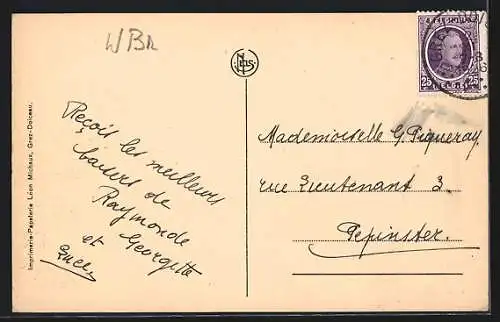 WBR
Nels
25 BELGIË 25
Reçois les meilleurs
baisers de
Raymonde
et Georgette
Mademoiselle G. Piqueray
rue Lieutenant 3.
Pepinster.
Imprimerie-Papeterie Léon Michaux, Grez-Doiceau.